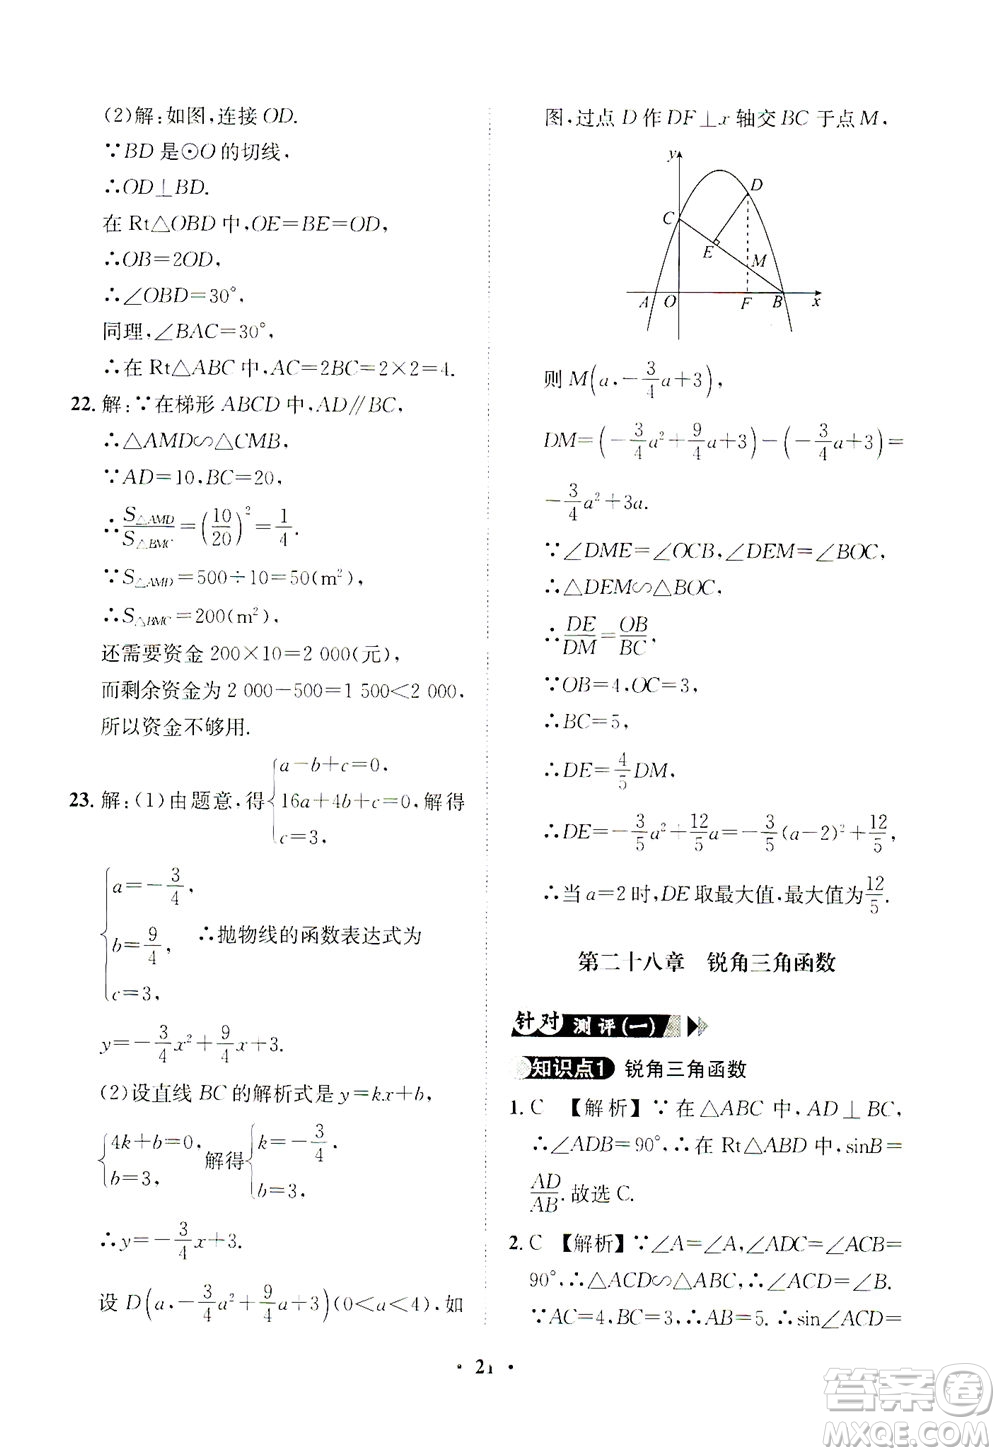 (2)解:如图,连接OD.
∵BD是⊙O的切线,
∴OD⊥BD.
在Rt△OBD中,OE=BE=OD,
∴OB=2OD,
∴∠OBD=30°,
同理,∠BAC=30°,
∴在Rt△ABC中,AC=2BC=2×2=4.
22. 解:∵在梯形ABCD中,AD∥BC,
∴△AMD∽△CMB.
∵AD=10,BC=20,
∴S△AMD/S△BMC=(10/20)²=1/4.
∵S△AMD=500÷10=50(m²),
∴S△BMC=200(m²),
还需要资金200×10=2 000(元),
而剩余资金为2 000-500=1 500<2 000,
所以资金不够用.
23. 解:(1)由题意,得{a-b+c=0, 16a+4b+c=0, c=3,解得
{a=-3/4, b=9/4, c=3, ∴抛物线的函数表达式为
y=-3/4x²+9/4x+3.
(2)设直线BC的解析式为y=kx+b,
{4k+b=0, b=3, 解得{k=-3/4, b=3,
∴y=-3/4x+3.
设D(a,-3/4a²+9/4a+3)(0<a<4),如
图,过点D作DF⊥x轴交BC于点M,
y
D
C
E
M
A O F B x
则M(a,-3/4a+3),
DM=(-3/4a²+9/4a+3)-(-3/4a+3)=
-3/4a²+3a.
∵∠DME=∠OCB,∠DEM=∠BOC,
∴△DEM∽△BOC,
∴DE/DM=OB/BC,
∵OB=4,OC=3,
∴BC=5,
∴DE=4/5DM,
∴DE=-3/5a²+12/5a=-3/5(a-2)²+12/5,
∴当a=2时,DE取最大值,最大值为12/5.
第二十八章 锐角三角函数
针对测评(一)
知识点1 锐角三角函数
1. C 【解析】∵在△ABC中,AD⊥BC,
∴∠ADB=90°,∴在Rt△ABD中,sinB=
AD/AB.故选C.
2. C 【解析】∵∠A=∠A,∠ADC=∠ACB=
90°,∴△ACD∽△ABC,∴∠ACD=∠B.
∵AC=4,BC=3,∴AB=5.∴sin∠ACD=
·21·
答案圈
MXQE.COM